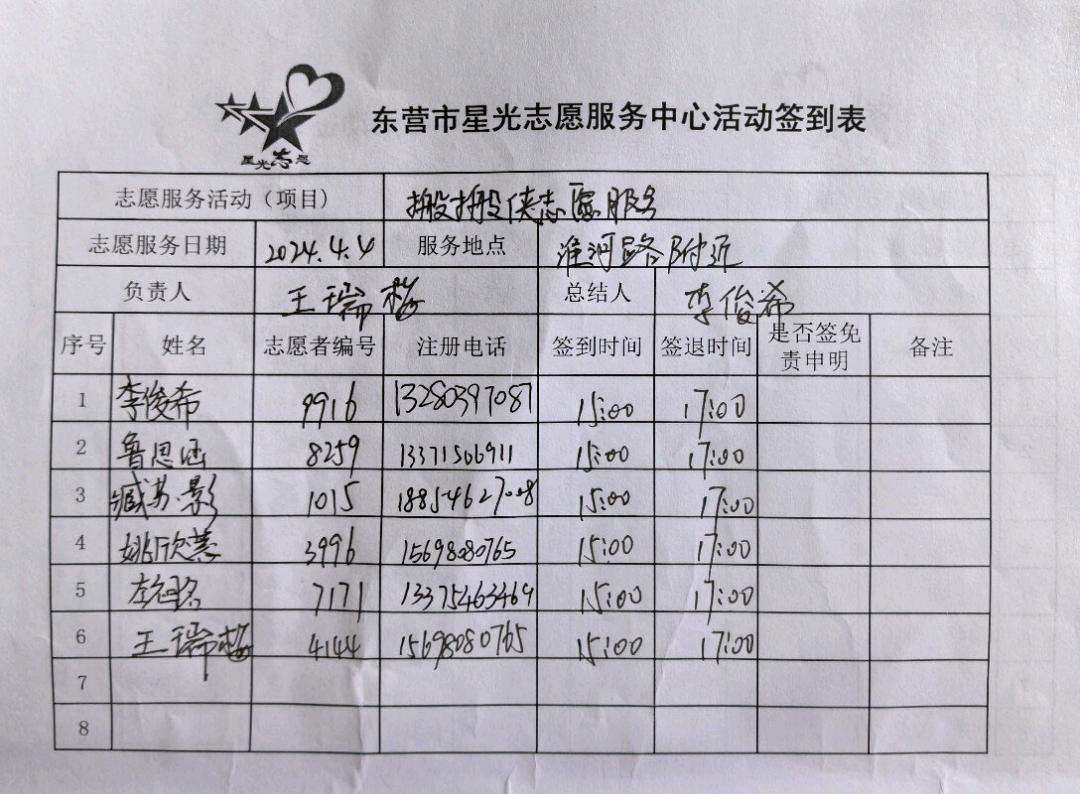 星光志愿
东营市星光志愿服务中心活动签到表
志愿服务活动（项目） 搬搬侠志愿服务
志愿服务日期 2024.4.4 服务地点 淮河路附近
负责人 王瑞梅 总结人 李俊希
序号 姓名 志愿者编号 注册电话 签到时间 签退时间 是否签免责申明 备注
1 李俊希 9916 13280397087 15:00 17:00
2 鲁思涵 8259 13371506911 15:00 17:00
3 臧苏影 1015 18854627008 15:00 17:00
4 姚欣慧 3996 15698080765 15:00 17:00
5 7171 13375463469 15:00 17:00
6 王瑞梅 4144 15698080765 15:00 17:00
7
8